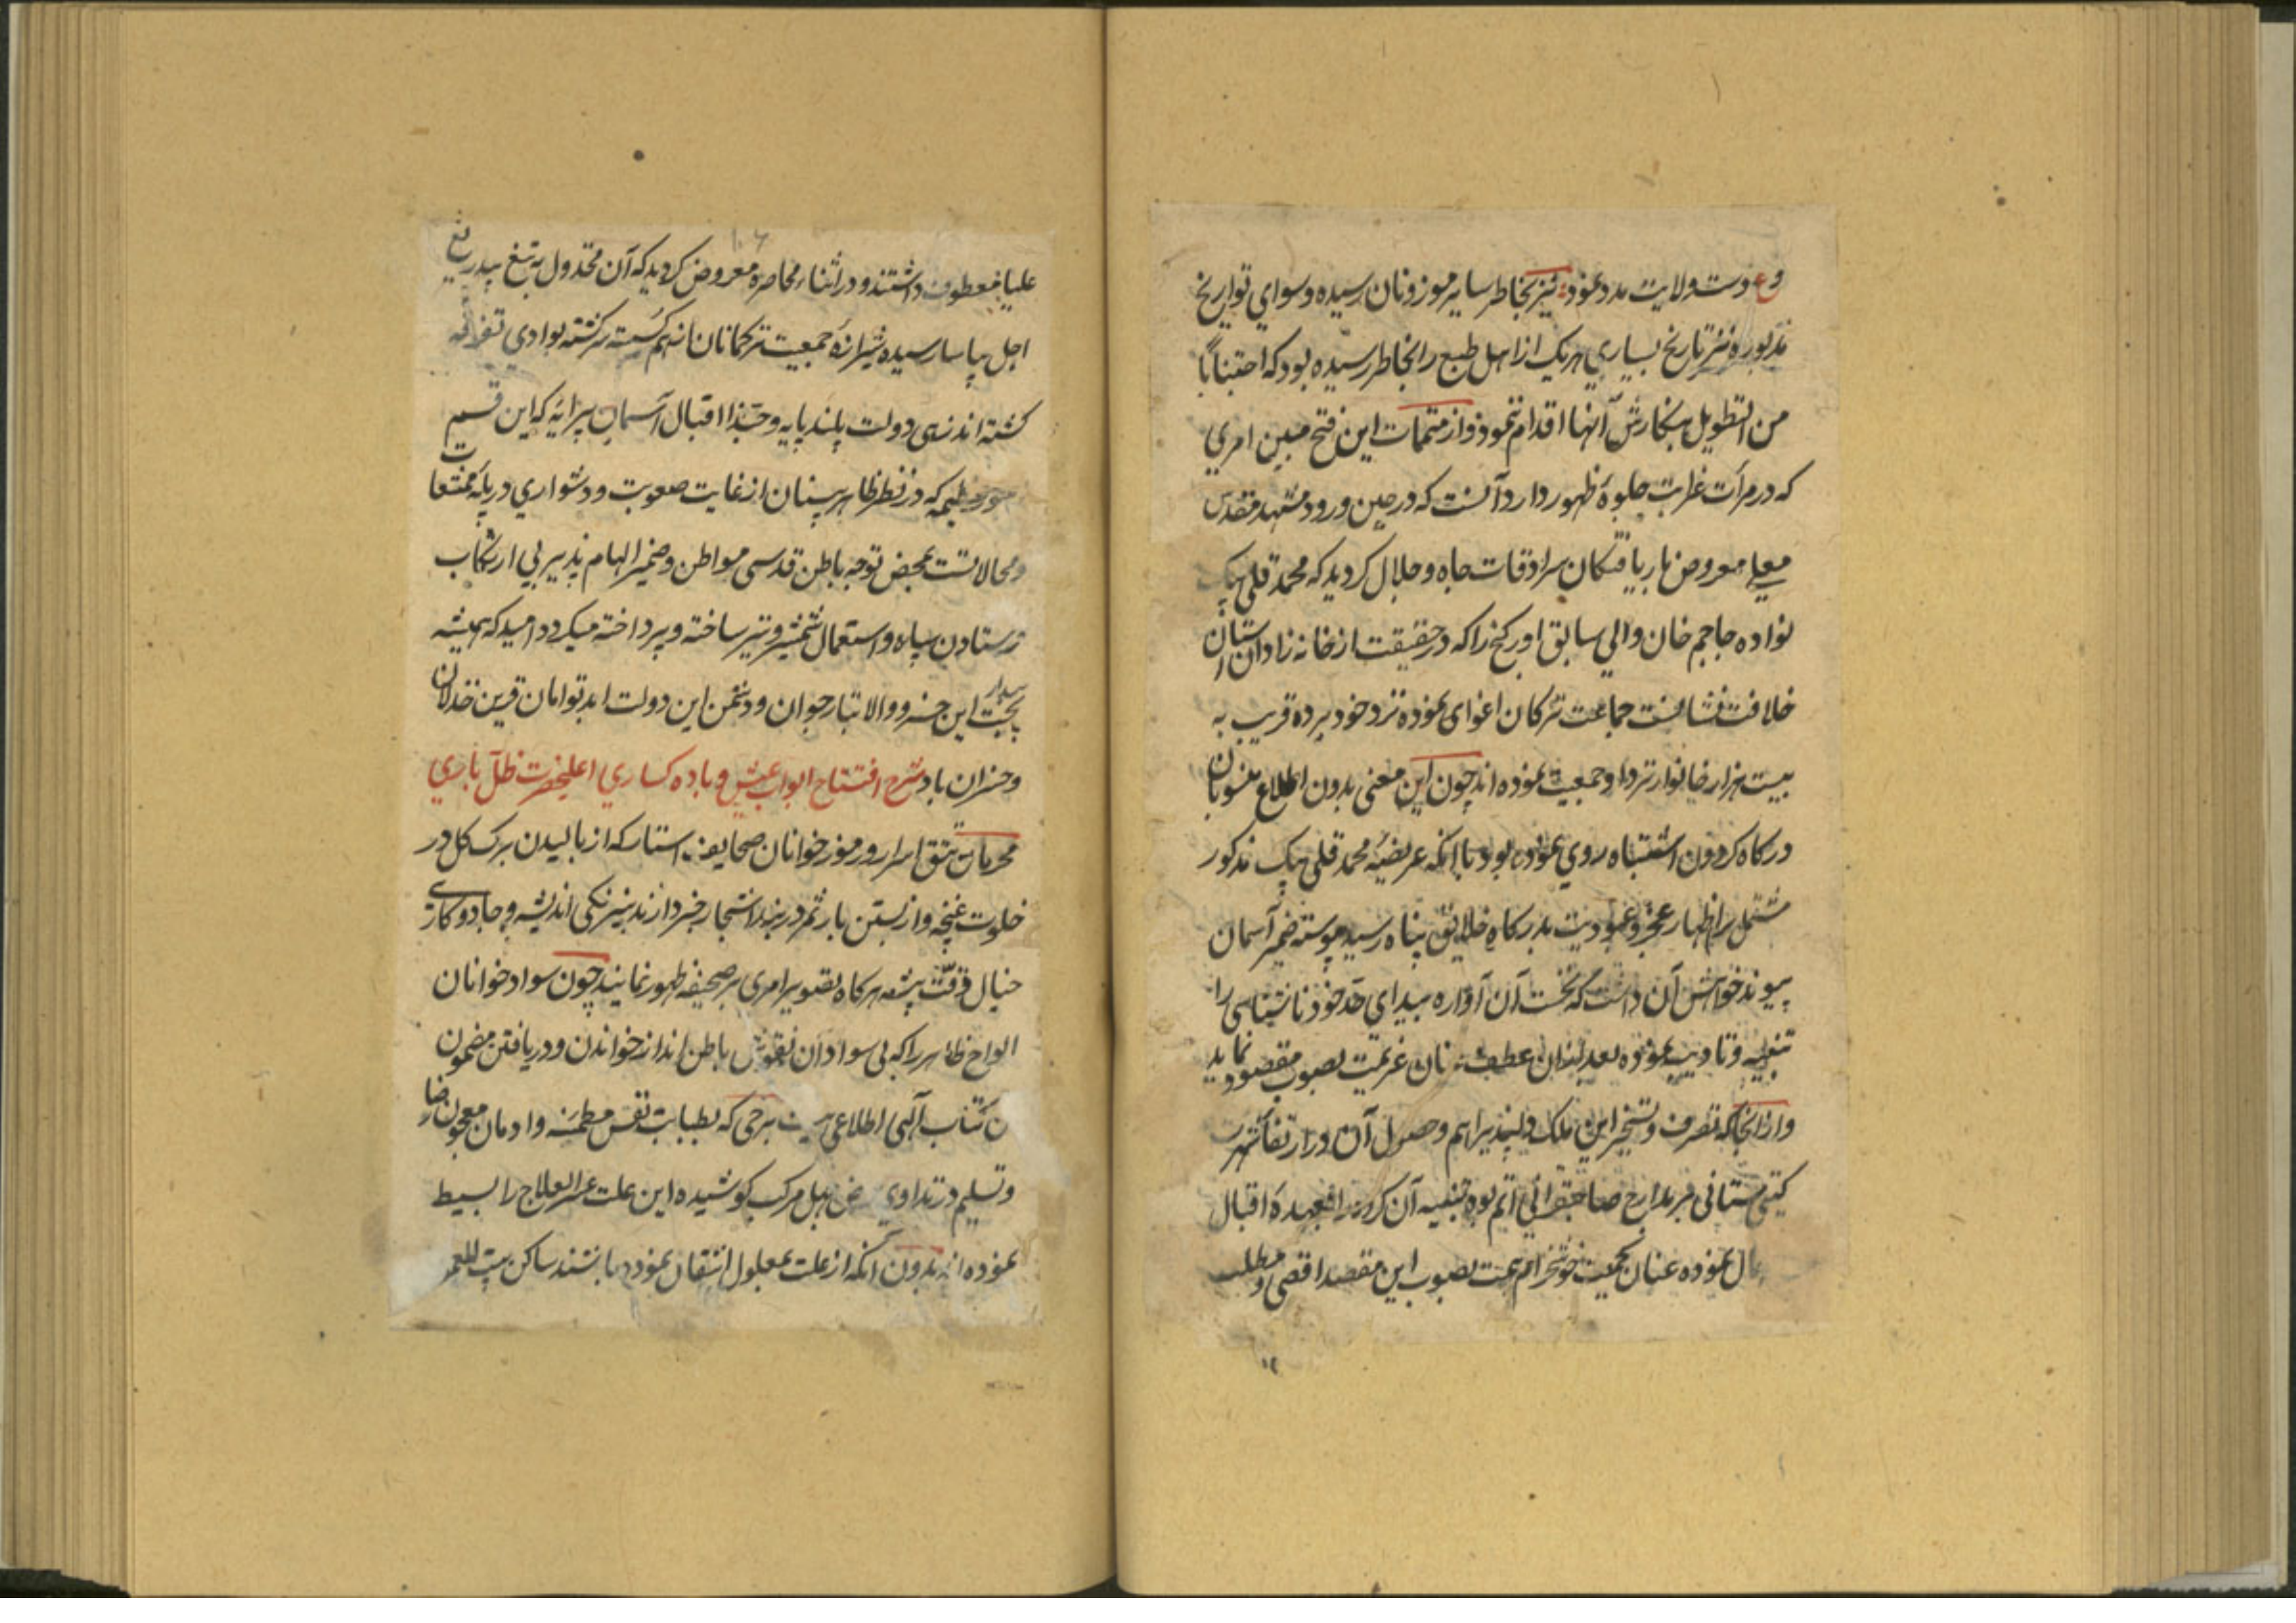 ع دست ولایت مدد نموده نیز بخاطر سایر موزونان رسیده و سوای تواریخ
مذبوره نیز تاریخ بسیاری هریک از اهل طبع را بخاطر رسیده بود که اجتناباً
من التطویل بنگارش آنها اقدام ننمود و از متممات این فتح مبین امری
که در مرآت غرابت جلوهٔ ظهور دارد آنست که در حین ورود مشهد مقدس
معلی معروض باریافتگان سرادقات جاه و جلال کردید که محمد قلی بیک
نواده حاجم خان والی سابق اورکنج را که در حقیقت از خانه زادان آستان
خلافت نشانست جماعت ترکمان اغوای نموده نزد خود برده قریب به
بیست هزار خانوار نزد او جمعیت نموده اند چون این معنی بدون اطلاع منسوبان
درکاه کردون اشتباه روی نموده بود با آنکه عریضه محمد قلی بیک مذکور
مشتمل بر اظهار عجز و عبودیت بدرکاه خلایق پناه رسید پیوسته ضمیر آسمان
پیوند خواهش آن داشت که نخست آن آواره بیدای حد خود ناشناسی را
تنبیه و تادیب نموده بعد از آن عطف عنان عزیمت بصوب مقصود نماید
و از آنجا که تصرف و تسخیر این ملک دلپذیر اهم و حصول آن در ارتقا شهرت
کیتی ستانی بر مدارج صاحبقرانی اتم بود تنبیه آن کروه را بعهدهٔ اقبال
نموده عنان جمعیت خوشخرام همت بصوب این مقصد اقصی و مطلب
علیا معطوف داشتند و در اثناء محاصره معروض کردید که آن مخذول به تیغ بیدریغ
اجل بیاسا رسیده شیرازهٔ جمعیت ترکمانان از هم کسسته سرکشته بوادی تفرقه
کشته اند زهی دولت بلند پایه و حبذا اقبال آسمان پیرایه که این قسم
عظیمه که در نظر ظاهر بینان از غایت صعوبت و دشواری در پایهٔ ممتنعات
و محالاتست بمحض توجه باطن قدسی مواطن و ضمیر الهام پذیر بی ارتکاب
فرستادن سپاه و استعمال شمشیر و تیر ساخته و پرداخته میکردد امید که همیشه
بخت بیدار این خسرو والا تبار جوان و دشمن این دولت ابد توامان قرین خذلان
و خسران باد شرح افتتاح ابواب عیش و باده کساری اعلیحضرت ظل باری
محرمان تتق اسرار و رموز خوانان صحایف استار که از بالیدن برک کل در
خلوت غنچه و از بستن بار ثمر در بند اشجار خبردارند نیرنکی اندیشه و جادوکاری
خیال دقت پیشه هرکاه تصویر امری بر صحیفهٔ ظهور نمایند چون سواد خوانان
الواح ظاهر را که بی سوادان نقوش باطن اند از خواندن و دریافتن مضمون
کتاب آلهی اطلاعی نیست برخی که بطبابت نفس مطمئنه و ادمان معجون رضا
و تسلیم در تداوی جهل مرکب کوشیده این علت عسر العلاج را بسیط
نموده اند بدون آنکه از علت بمعلول انتقال نموده باشند ساکن بیت المعمور